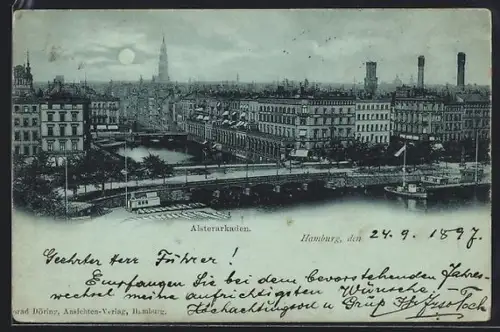 Alsterarkaden.
Hamburg, den 24. 9. 1897.
Geehrter Herr Führer!
Empfangen Sie bei dem bevorstehenden Jahres-
wechsel meine aufrichtigsten Wünsche.
Hochachtungsvoll u Gruß
rad Döring, Ansichten-Verlag, Hamburg.